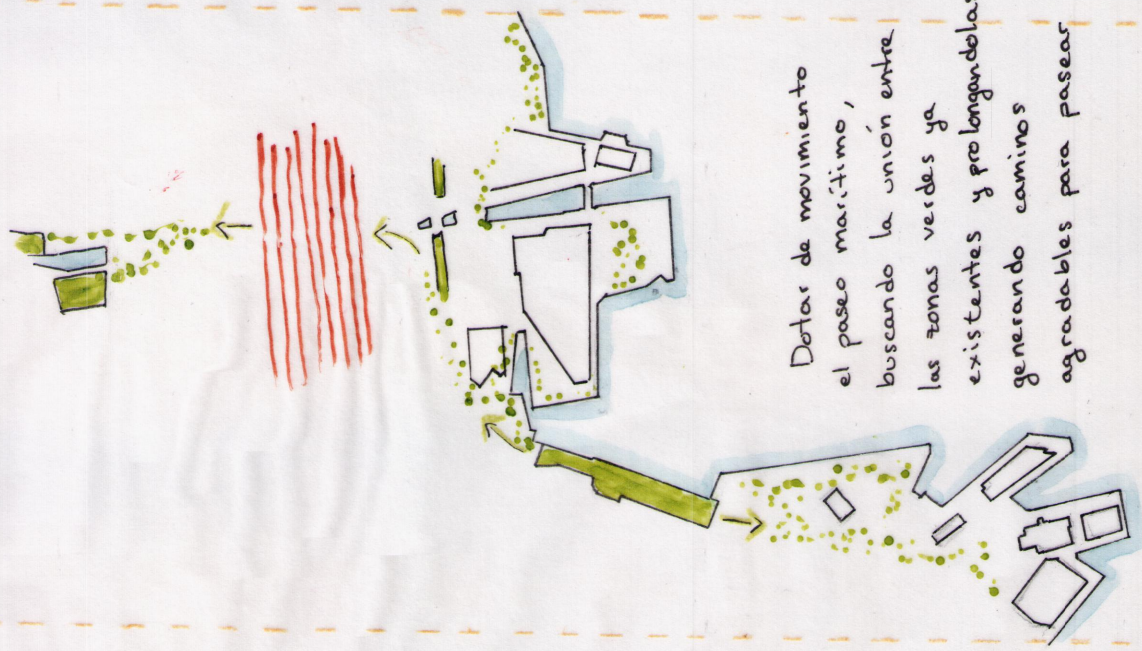 Dotar de movimiento
el paseo marítimo,
buscando la unión entre
las zonas verdes ya
existentes y prolongandolas
generando caminos
agradables para pasear